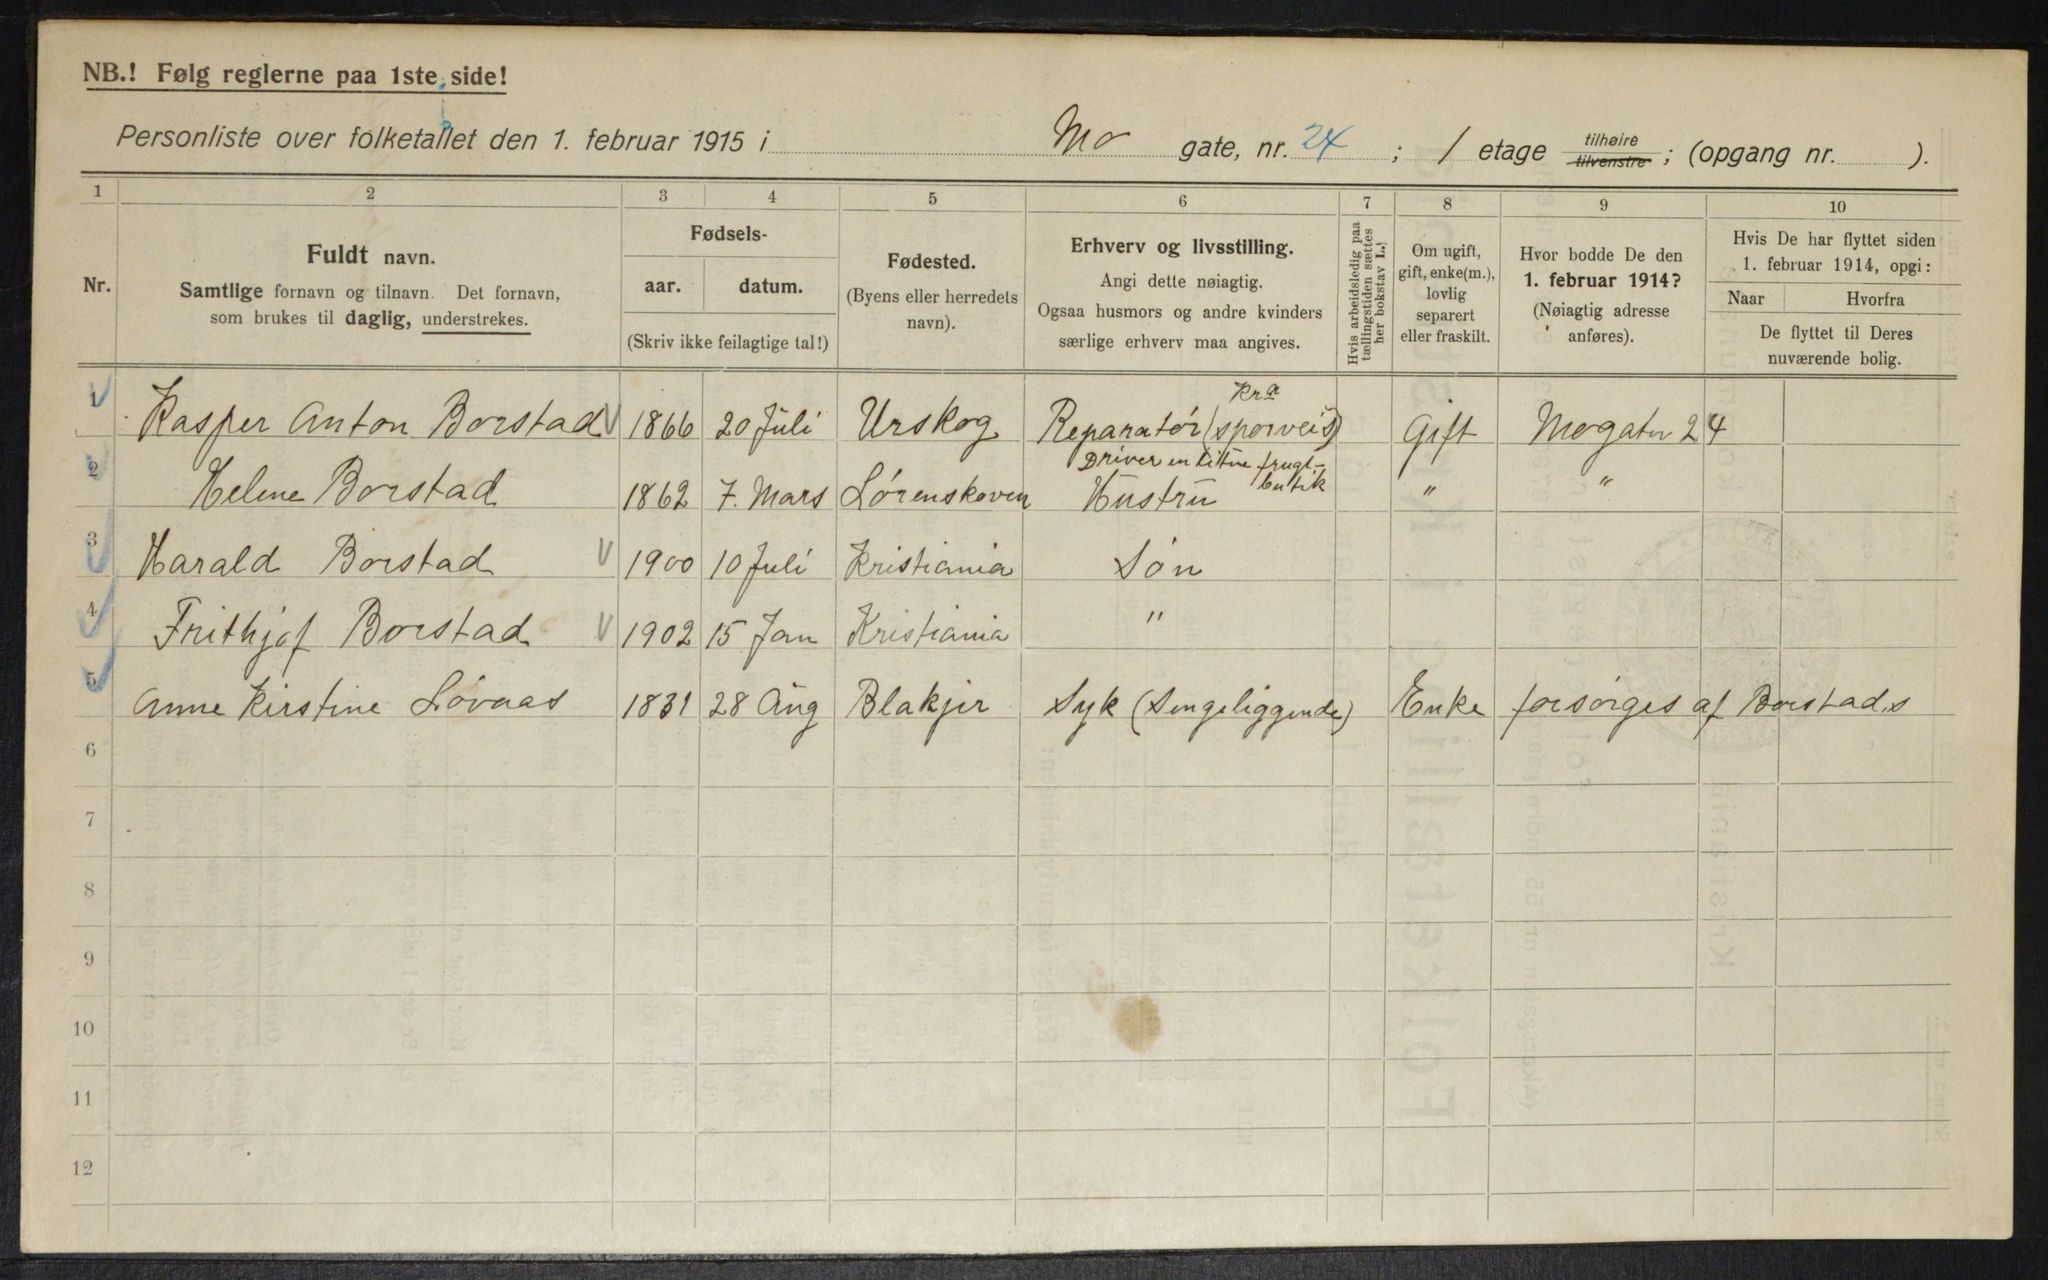 NB.! Følg reglerne paa 1ste side!
Personliste over folketallet den 1. februar 1915 i Mo gate, nr. 24 ; 1 etage tilhøire tilvenstre ; (opgang nr. ).
1 2 3 4 5 6 7 8 9 10
Nr.
Fuldt navn.
Samtlige fornavn og tilnavn. Det fornavn,
som brukes til daglig, understrekes.
Fødsels-
aar. datum.
(Skriv ikke feilagtige tal!)
Fødested.
(Byens eller herredets
navn).
Erhverv og livsstilling.
Angi dette nøiagtig.
Ogsaa husmors og andre kvinders
særlige erhverv maa angives.
Hvis arbeidsledig paa
tællingstiden sættes
her bokstav L.!
Om ugift,
gift, enke(m.),
lovlig
separert
eller fraskilt.
Hvor bodde De den
1. februar 1914?
(Nøiagtig adresse
anføres).
Hvis De har flyttet siden
1. februar 1914, opgi:
Naar Hvorfra
De flyttet til Deres
nuværende bolig.
1 Kasper Anton Borstad 1866 20 Juli Urskog Reparatør (Kra sporveis) Gift Mogaten 24
2 Helene Borstad 1862 7. Mars Lørenskoven Driver en liten frugt-butik Hustru " "
3 Harald Borstad 1900 10 Juli Kristiania Søn
4 Frithjof Borstad 1902 15 Jan Kristiania "
5 Anne Kirstine Løvaas 1831 28 Aug Blakjer Syk (Sengeliggende) Enke forsørges af Borstads
6
7
8
9
10
11
12